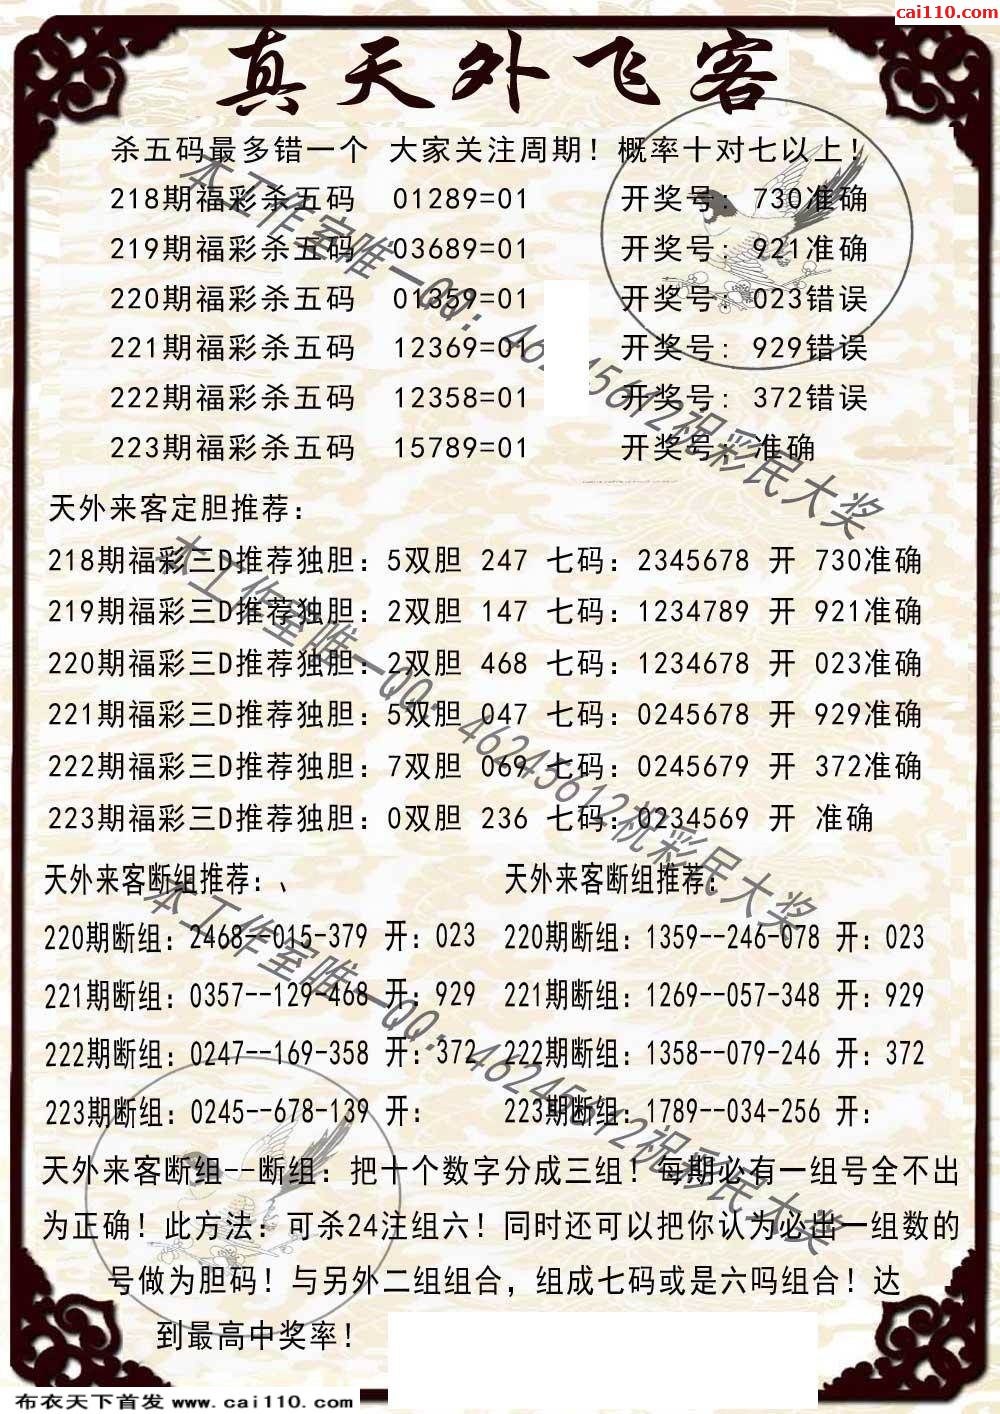 cai110.com
真天外飞客
杀五码最多错一个 大家关注周期！概率十对七以上！
218期福彩杀五码 01289=01 开奖号：730准确
219期福彩杀五码 03689=01 开奖号：921准确
220期福彩杀五码 01359=01 开奖号：023错误
221期福彩杀五码 12369=01 开奖号：929错误
222期福彩杀五码 12358=01 开奖号：372错误
223期福彩杀五码 15789=01 开奖号：准确
本工作室唯一QQ：46245612祝彩民大奖
天外来客定胆推荐：
218期福彩三D推荐独胆：5双胆 247 七码：2345678 开 730准确
219期福彩三D推荐独胆：2双胆 147 七码：1234789 开 921准确
220期福彩三D推荐独胆：2双胆 468 七码：1234678 开 023准确
221期福彩三D推荐独胆：5双胆 047 七码：0245678 开 929准确
222期福彩三D推荐独胆：7双胆 069 七码：0245679 开 372准确
223期福彩三D推荐独胆：0双胆 236 七码：0234569 开 准确
本工作室唯一QQ：46245612祝彩民大奖
天外来客断组推荐：、 天外来客断组推荐：
220期断组：2468--015-379 开：023 220期断组：1359--246-078 开：023
221期断组：0357--129-468 开：929 221期断组：1269--057-348 开：929
222期断组：0247--169-358 开：372 222期断组：1358--079-246 开：372
223期断组：0245--678-139 开： 223期断组：1789--034-256 开：
本工作室唯一QQ：46245612祝彩民大奖
天外来客断组--断组：把十个数字分成三组！每期必有一组号全不出
为正确！此方法：可杀24注组六！同时还可以把你认为必出一组数的
号做为胆码！与另外二组组合，组成七码或是六吗组合！达
到最高中奖率！
布衣天下首发 www.cai110.com